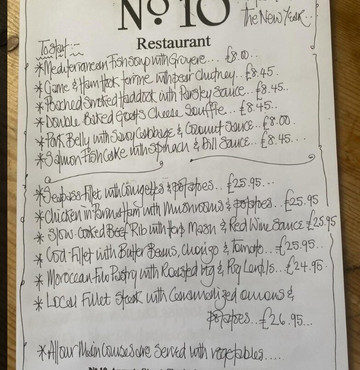 No 10
the New Year..
Restaurant
To start:-
*Mediterranean Fish soup with Gruyere... £8.00..
*Game & Ham Hock terrine with pear Chutney.. £8.45..
*Poached Smoked Haddock with Parsley Sauce.. £8.45.
*Double Baked Goats Cheese Soufflé... £8.45..
*Pork Belly with Savoy Cabbage & Caramel Sauce.. £8.00
*Salmon Fish Cake with Spinach & Dill Sauce.. £8.45...
*Seabass Fillet with Courgettes & potatoes... £25.95...
*Chicken in Parma Ham with Mushrooms & potatoes.. £25.95
*Slow Cooked Beef Rib with Horse Mash & Red Wine Sauce £25.95
*Cod Fillet with Butter Beans, Chorizo & tomato... £25.95...
*Moroccan Filo Pastry with Roasted Veg & Puy Lentils.. £24.95.
*Local Fillet Steak with Caramelized onions &
potatoes.. £26.95...
*All our Main Courses are served with vegetables.....